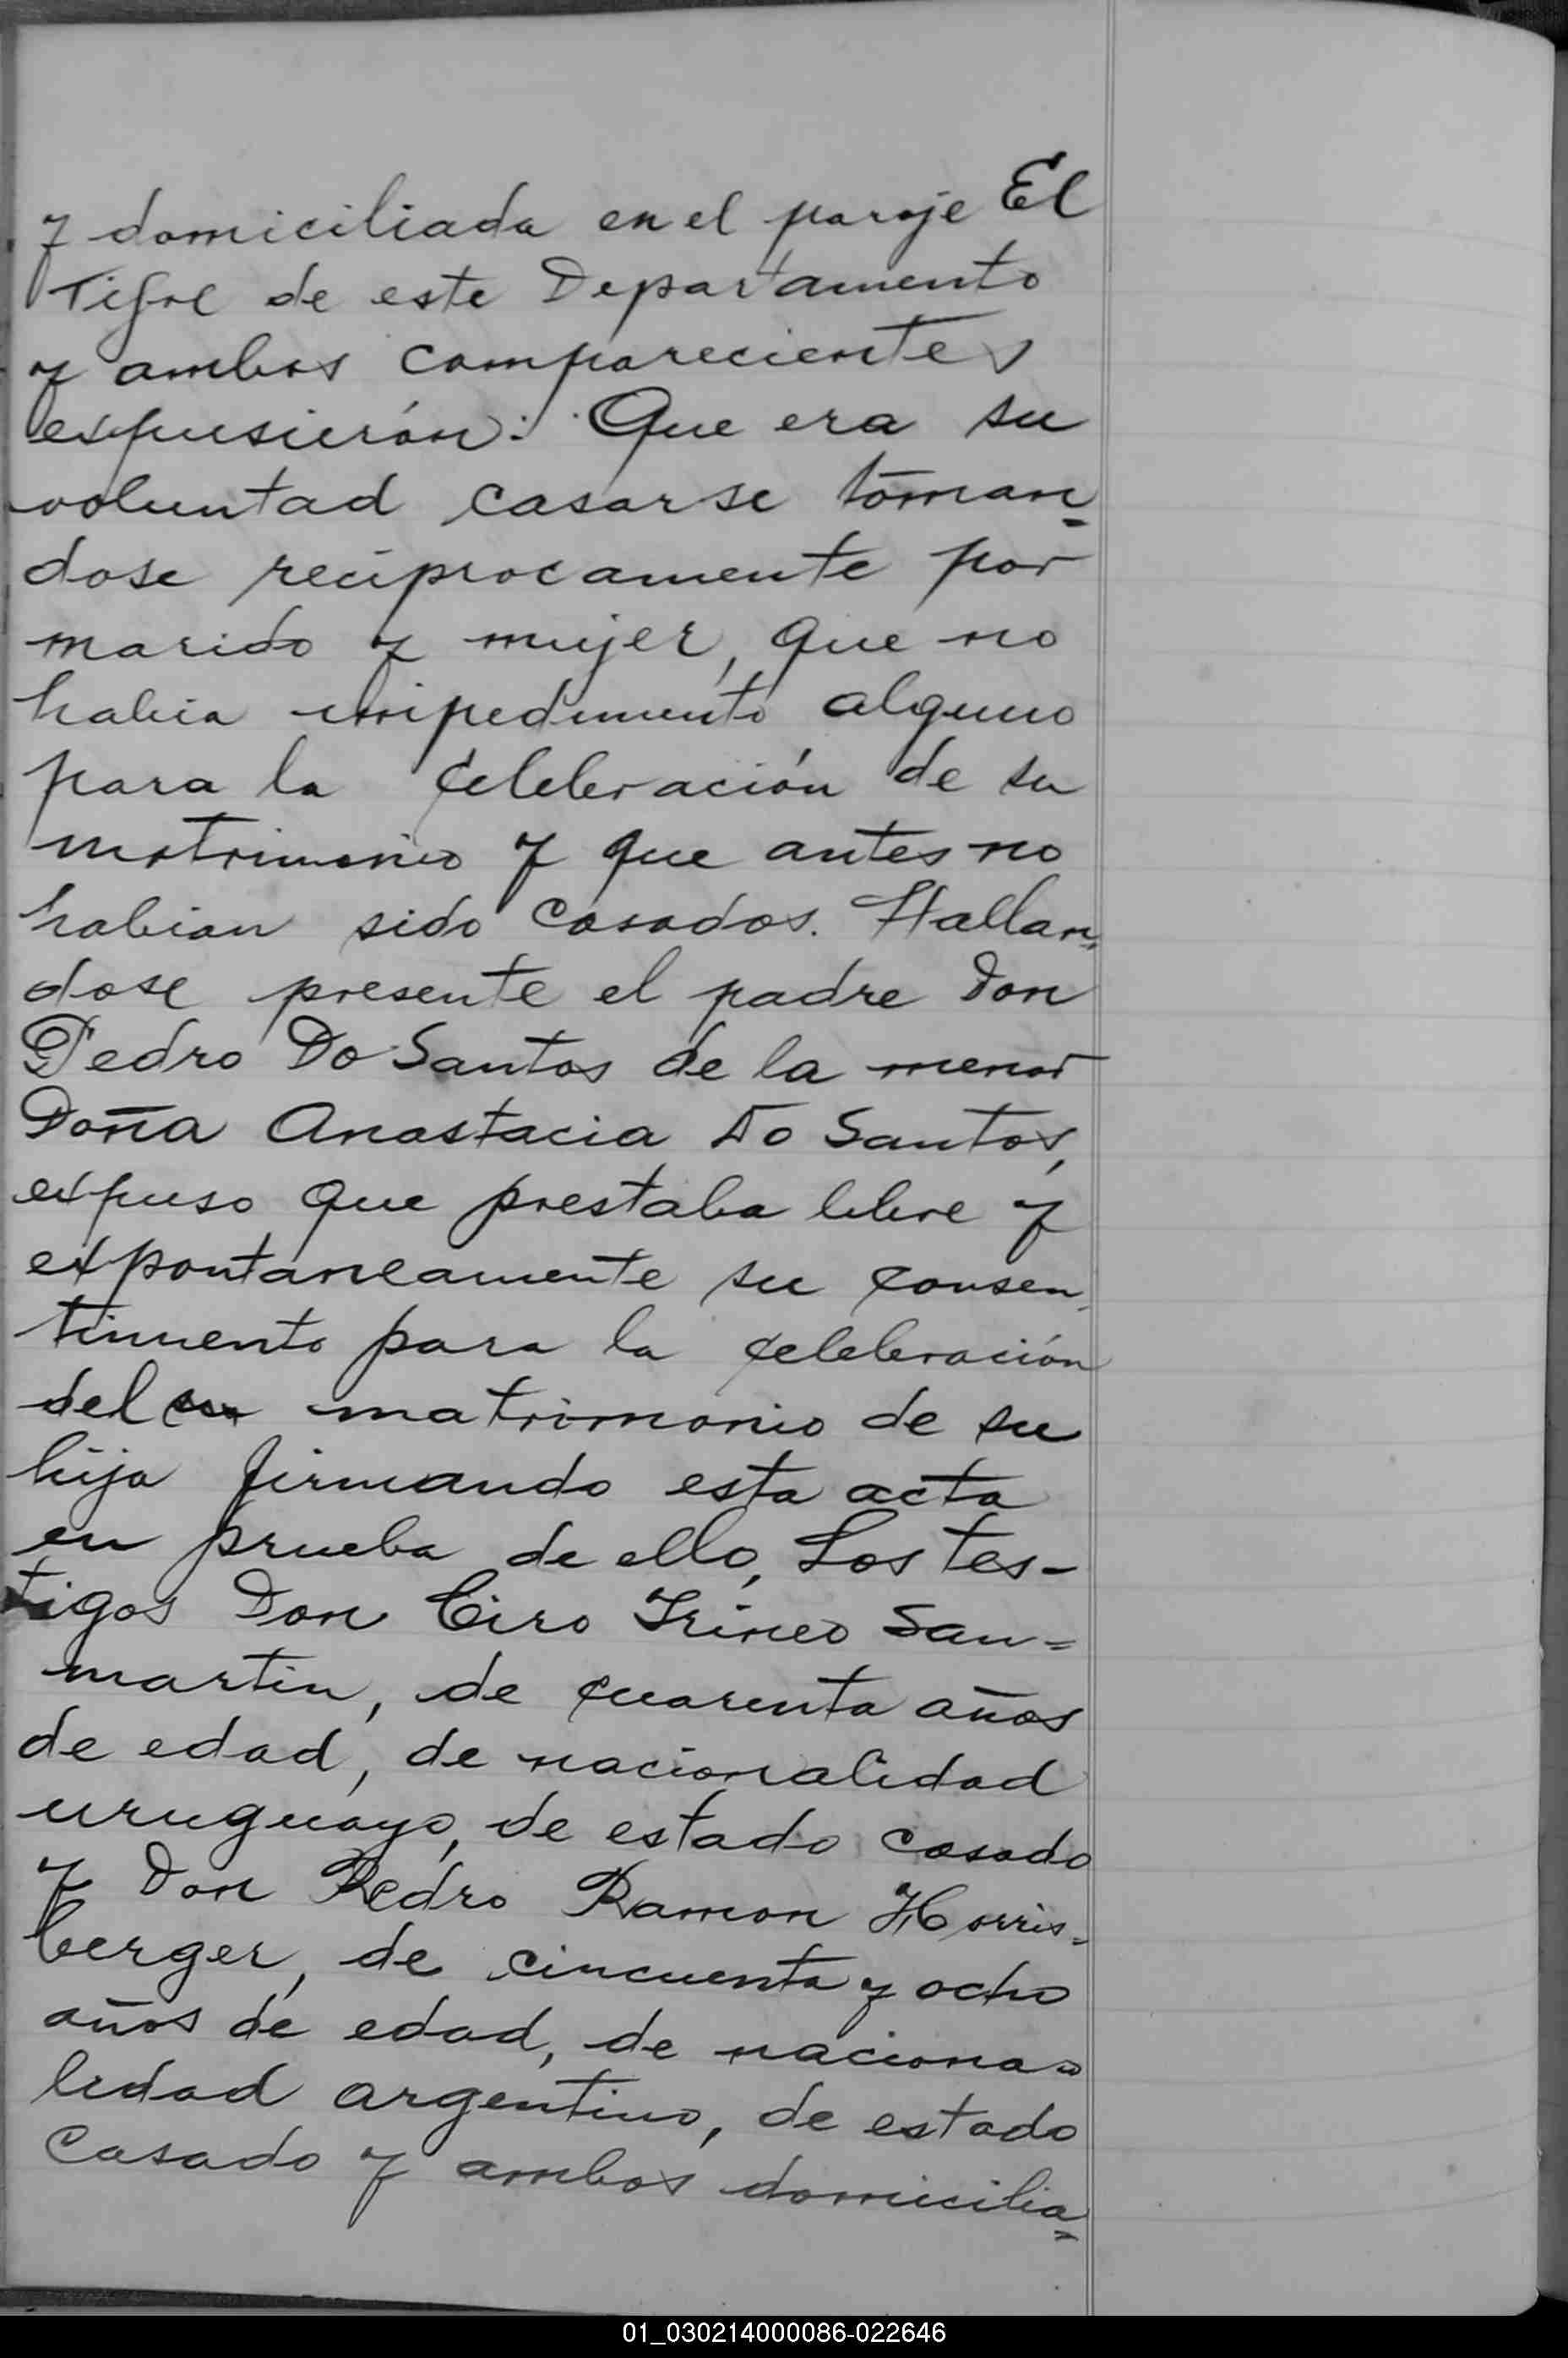 y domiciliada en el paraje El
Tigre de este Departamento
y ambos comparecientes
expusierón: Que era su
voluntad casarse toman=
dose reciprocamente por
marido y mujer, que no
habia impedimento alguno
para la celebración de su
matrimonio y que antes no
habian sido casados. Hallan=
dose presente el padre Don
Pedro Do Santos de la menor
Doña Anastacia Do Santos,
expuso que prestaba libre y
expontaneamente su consen
timiento para la celebración
del matrimonio de su
hija firmando esta acta
en prueba de ello, Los tes-
tigos Don Ciro Irineo San=
martin, de cuarenta años
de edad, de nacionalidad
uruguayo, de estado casado
y Don Pedro Ramon Horris=
berger, de cincuenta y ocho
años de edad, de naciona=
lidad argentino, de estado
casado y ambos domicilia=
01_030214000086-022646